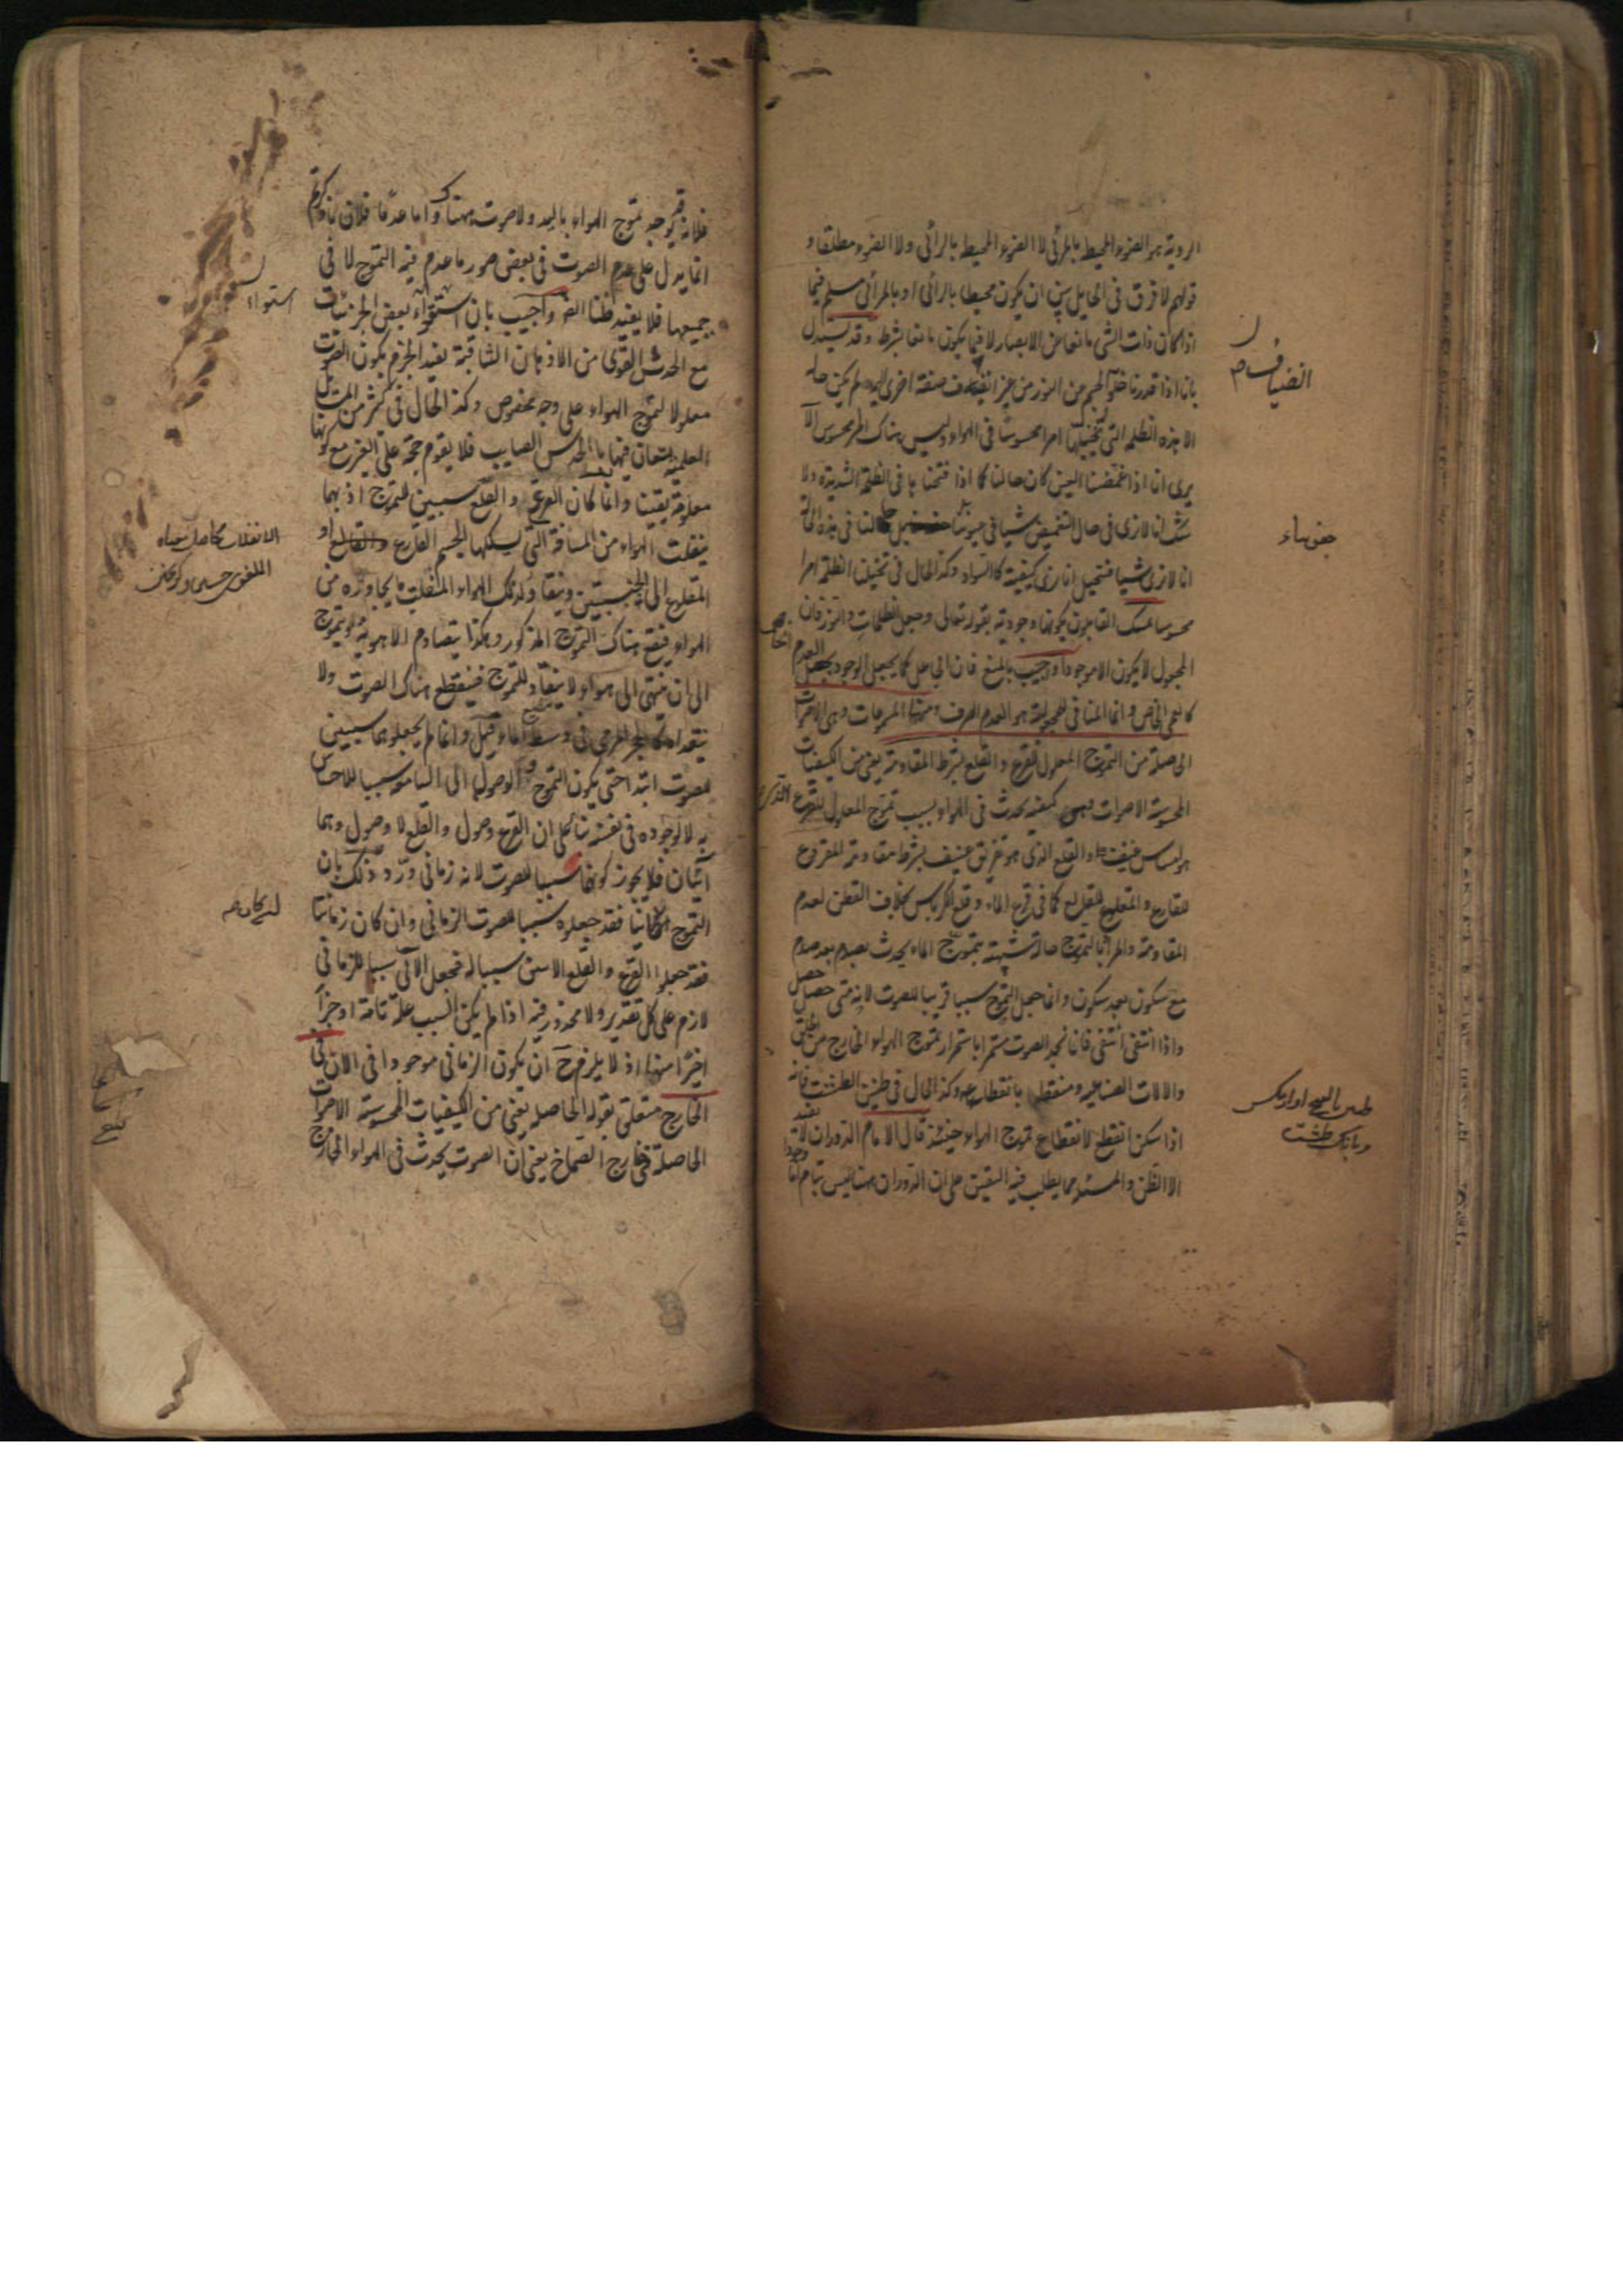 الروية هو الضوء المحيط بالمرئي لا الضوء المحيط بالرائي ولا الضوء مطلقا و
قولهم لا فرق في الحايل بين ان يكون محيطا بالرائي او بالمرائي مسلم فيما
اذا كان ذات الشي مانعا من الابصار لا فيما يكون مانعا بشرط وقد يستدل
بانا اذا قدرنا خلو الجسم من النور من غير انضياف صفة اخرى اليه لم يكن حاله
الا هذه الظلمة التي نتخيلها امرا محسوسا في الهواء وليس هناك امر محسوس الا
يرى انا اذا غمضنا العين كان حالنا كما اذا فتحنا ها في الظلمة الشديدة ولا
شك انا لا نرى في حال التغميض شيا في جفوننا حالنا في هذه الحالة
انا لا نرى شيا فنتخيل انا نرى كيفية كالسواد وكذا الحال في تخيلنا الظلمة امرا
محسوسا تمسك القايلون بكونها وجودية بقوله تعالى وجعل الظلمات والنور فان
المجعول لا يكون الا موجودا واجيب بالمنع فان الجاعل كما يجعل الوجود يجعل العدم
الخاص كالعمى وانما المنافي للمجعولية هو العدم الصرف ومنها المسموعات وهي الاصوات
الحاصلة من التموج المعلول للقرع والقلع بشرط المقاومة يعني من الكيفيات
المحسوسة الاصوات وهي كيفية تحدث في الهواء بسبب تموج المعلول للقرع الذي
هو امساس عنيف او القلع الذي هو تفريق عنيف بشرط مقاومة المقروع
للقارع والمقلوع للقالع كما في قرع الماء وقلع الكرباس بخلاف القطن لعدم
المقاومة والمراد بالتموج حالة شبيهة بتموج الماء يحدث بصدم بعد صدم
مع سكون بعد سكون وانما جعل التموج سببا قريبا للصوت لانه متى حصل حصل
واذا انتفى انتفى فانا نجد الصوت مستمرا باستمرار تموج الهواء الخارج من الحلق
والالات الصناعية ومنقطعا بانقطاعه وكذا الحال في طنين الطشت فانه
اذا سكن انقطع لانقطاع تموج الهواء حينئذ قال الامام الدوران لا يفيد
الا الظن والمسئلة مما يطلب فيه اليقين على ان الدوران ههنا ليس بتام اما وجودا
انضياف صح
جفنها
فلانه قد يوجد تموج الهواء باليد ولا صوت هناك واما عدما فلان ما ذكرتم
انما يدل على عدم الصوت في بعض صور ما عدم فيه التموج لا في
جميعها فلا يفيد ظنا ايضا واجيب بان استقراء بعض الجزئيات
مع الحدس القوي من الاذهان الثاقبة يفيد الجزم بكون الصوت
معلولا لتموج الهواء على وجه مخصوص وكذا الحال في كثير من المسائل
العلمية يستعان فيها بالحدس الصايب فلا يقوم حجة على الغير مع كونها
معلومة يقينا وانما كان القرع والقلع سببين للتموج اذ بهما
ينفلت الهواء من المسافة التي يسلكها الجسم القارع او
المقلوع الى الجنبتين وينقاد لذلك الهواء المنفلت ما يجاوره من
الهواء فيقع هناك التموج المذكور وهكذا يتصادم الاهوية ويتموج
الى ان تنتهي الى هواء لا ينقاد للتموج فينقطع هناك الصوت ولا
يتعداه كالحجر المرمي في وسط الماء قيل وانما لم يجعلوهما سببين
للصوت ابتداء حتى يكون التموج والوصول الى السامعة سببا للاحساس
به لا لوجوده في نفسه بناء على ان القرع وصول والقلع لا وصول وهما
آنيان فلا يجوز كونهما سببا للصوت لانه زماني ورد ذلك بان
التموج ان كان آنيا فقد جعلوه سببا للصوت الزماني وان كان زمانيا
فقد جعلوا القرع والقلع الانيين سببا له فجعل الآني سببا للزماني
لازم على كل تقدير ولا محذور فيه اذا لم يكن السبب علة تامة او جزأ
اخيرا منها اذ لا يلزم ح ان يكون الزماني موجودا في الان في
الخارج متعلق بقوله الحاصلة يعني من الكيفيات المحسوسة الاصوات
الحاصلة في خارج الصماخ يعني ان الصوت يحدث في الهواء الخارج
استواء